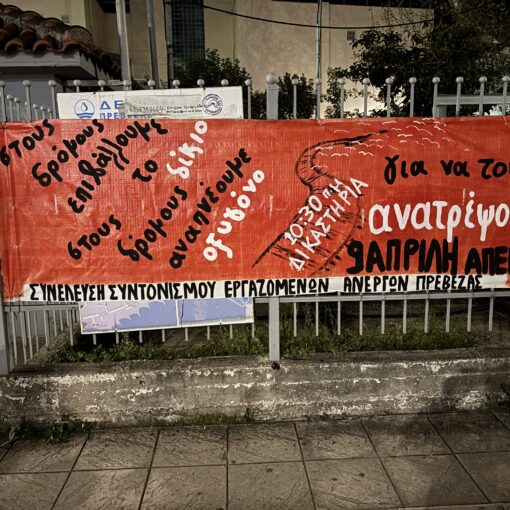 στους
δρόμους
επιβάλλουμε
το
δίκιο
στους
δρόμους
αναπνέουμε
οξυγόνο
10:30πμ
ΔΙΚΑΣΤΗΡΙΑ
για να του
ανατρέψο
9ΑΠΡΙΛΗ ΑΠΕ
ΣΥΝΕΛΕΥΣΗ ΣΥΝΤΟΝΙΣΜΟΥ ΕΡΓΑΖΟΜΕΝΩΝ ΑΝΕΡΓΩΝ ΠΡΕΒΕΖΑΣ
ΔΕ
ΠΡΕΒΕΖ